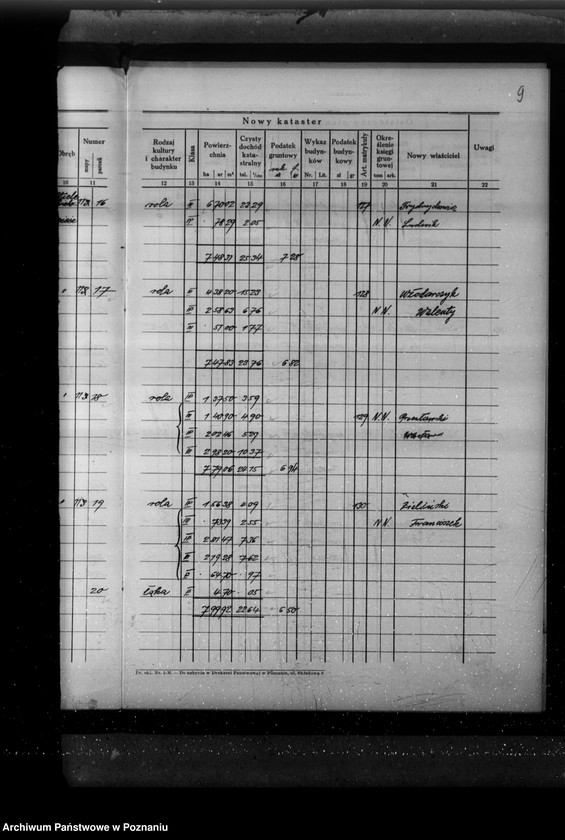 9
Nowy kataster
Obręb Numer mapy parceli Rodzaj kultury i charakter budynku Klasa Powierzchnia ha ar m² Czysty dochód katastralny tal. 1/100 Podatek gruntowy Wykaz budynków Nr. Lit. Podatek budynkowy zł gr Art. matrykuły Określenie księgi gruntowej tom ark. Nowy właściciel Uwagi
10 11 12 13 14 15 16 17 18 19 20 21 22
16 rola 6 70 02 23 29 127
78 29 2 05 N.N. Ludwik
7 48 31 25 34 7 28
17 rola 4 38 20 15 23 128 Włodarczyk
2 58 63 6 76 N.N. Walenty
51 00 1 77
7 47 83 23 76 6 82
28 rola III 1 37 50 3 59
1 40 90 4 90 129 N.N.
2 02 46 5 29
2 98 20 10 37
7 79 06 24 15 6 94
19 rola 1 56 38 4 09 130 Zieliński
73 39 2 55 N.N. Franciszek
2 81 47 7 36
2 19 28 7 62
64 70 97
20 łąka 4 70 05
7 99 92 22 64 6 50
Do nabycia w Drukarni Państwowej w Poznaniu, ul. Składowa
Archiwum Państwowe w Poznaniu